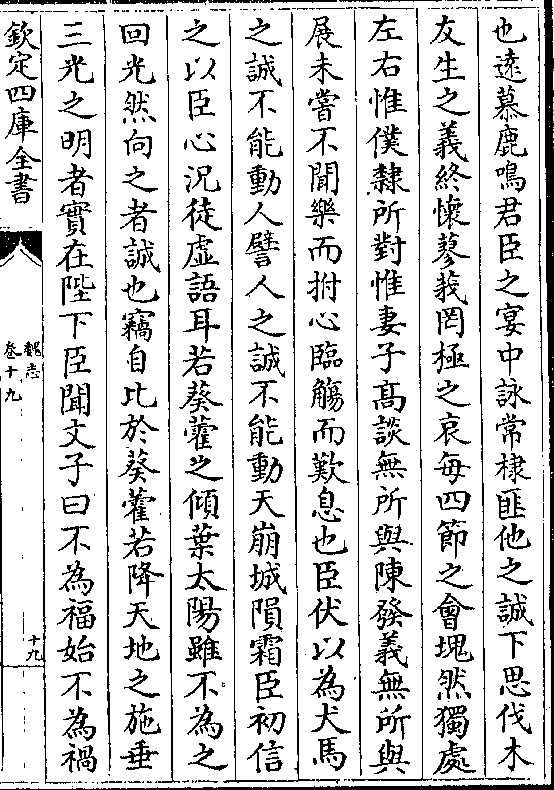 也遠慕鹿鳴君臣之宴中詠常棣匪他之誠下思伐木
友生之義終懷蓼莪罔極之哀每四節之會塊然獨處
左右惟僕隸所對惟妻子髙談無所與陳發義無所與
展未嘗不聞樂而拊心臨觴而歎息也臣伏以為犬馬
之誠不能動人譬人之誠不能動天崩城隕霜臣初信
之以臣心況徒虛語耳若葵藿之傾葉太陽雖不為之
回光然向之者誠也竊自比於葵藿若降天地之施垂
三光之明者實在陛下臣聞文子曰不為福始不為禍
欽定四庫全書
魏志
卷十九
十九